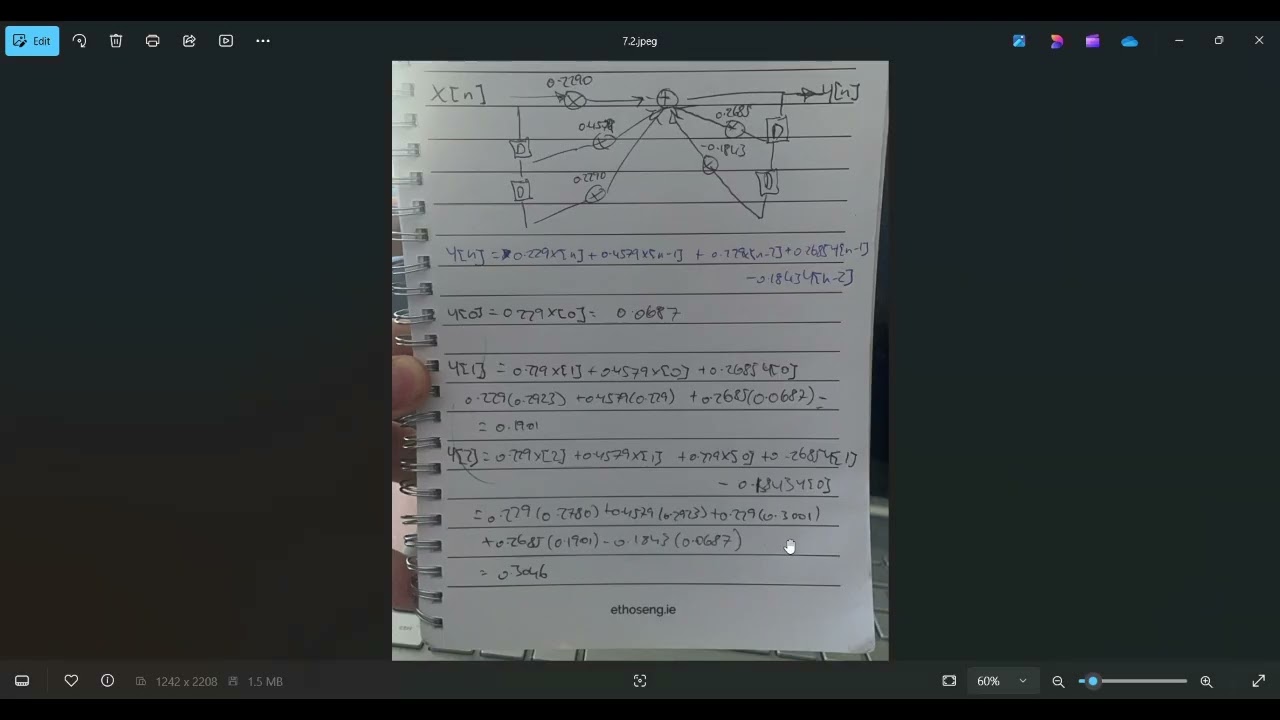 Edit
7.2.jpeg
X[n]
0.2290
+
Y[n]
0.4579
0.2685
D
D
-0.1843
0.2290
D
D
Y[n] = 0.229x[n] + 0.4579x[n-1] + 0.229x[n-2] + 0.2685Y[n-1]
-0.1843Y[n-2]
Y[0] = 0.229x[0] = 0.0687
Y[1] = 0.229x[1] + 0.4579x[0] + 0.2685Y[0]
0.229(0.2923) + 0.4579(0.229) + 0.2685(0.0687) =
= 0.1901
Y[2] = 0.229x[2] + 0.4579x[1] + 0.229x[0] + 0.2685Y[1]
- 0.1843Y[0]
= 0.229(0.2780) + 0.4579(0.2923) + 0.229(0.3001)
+ 0.2685(0.1901) - 0.1843(0.0687)
= 0.3046
ethoseng.ie
1242 x 2208 1.5 MB
60%